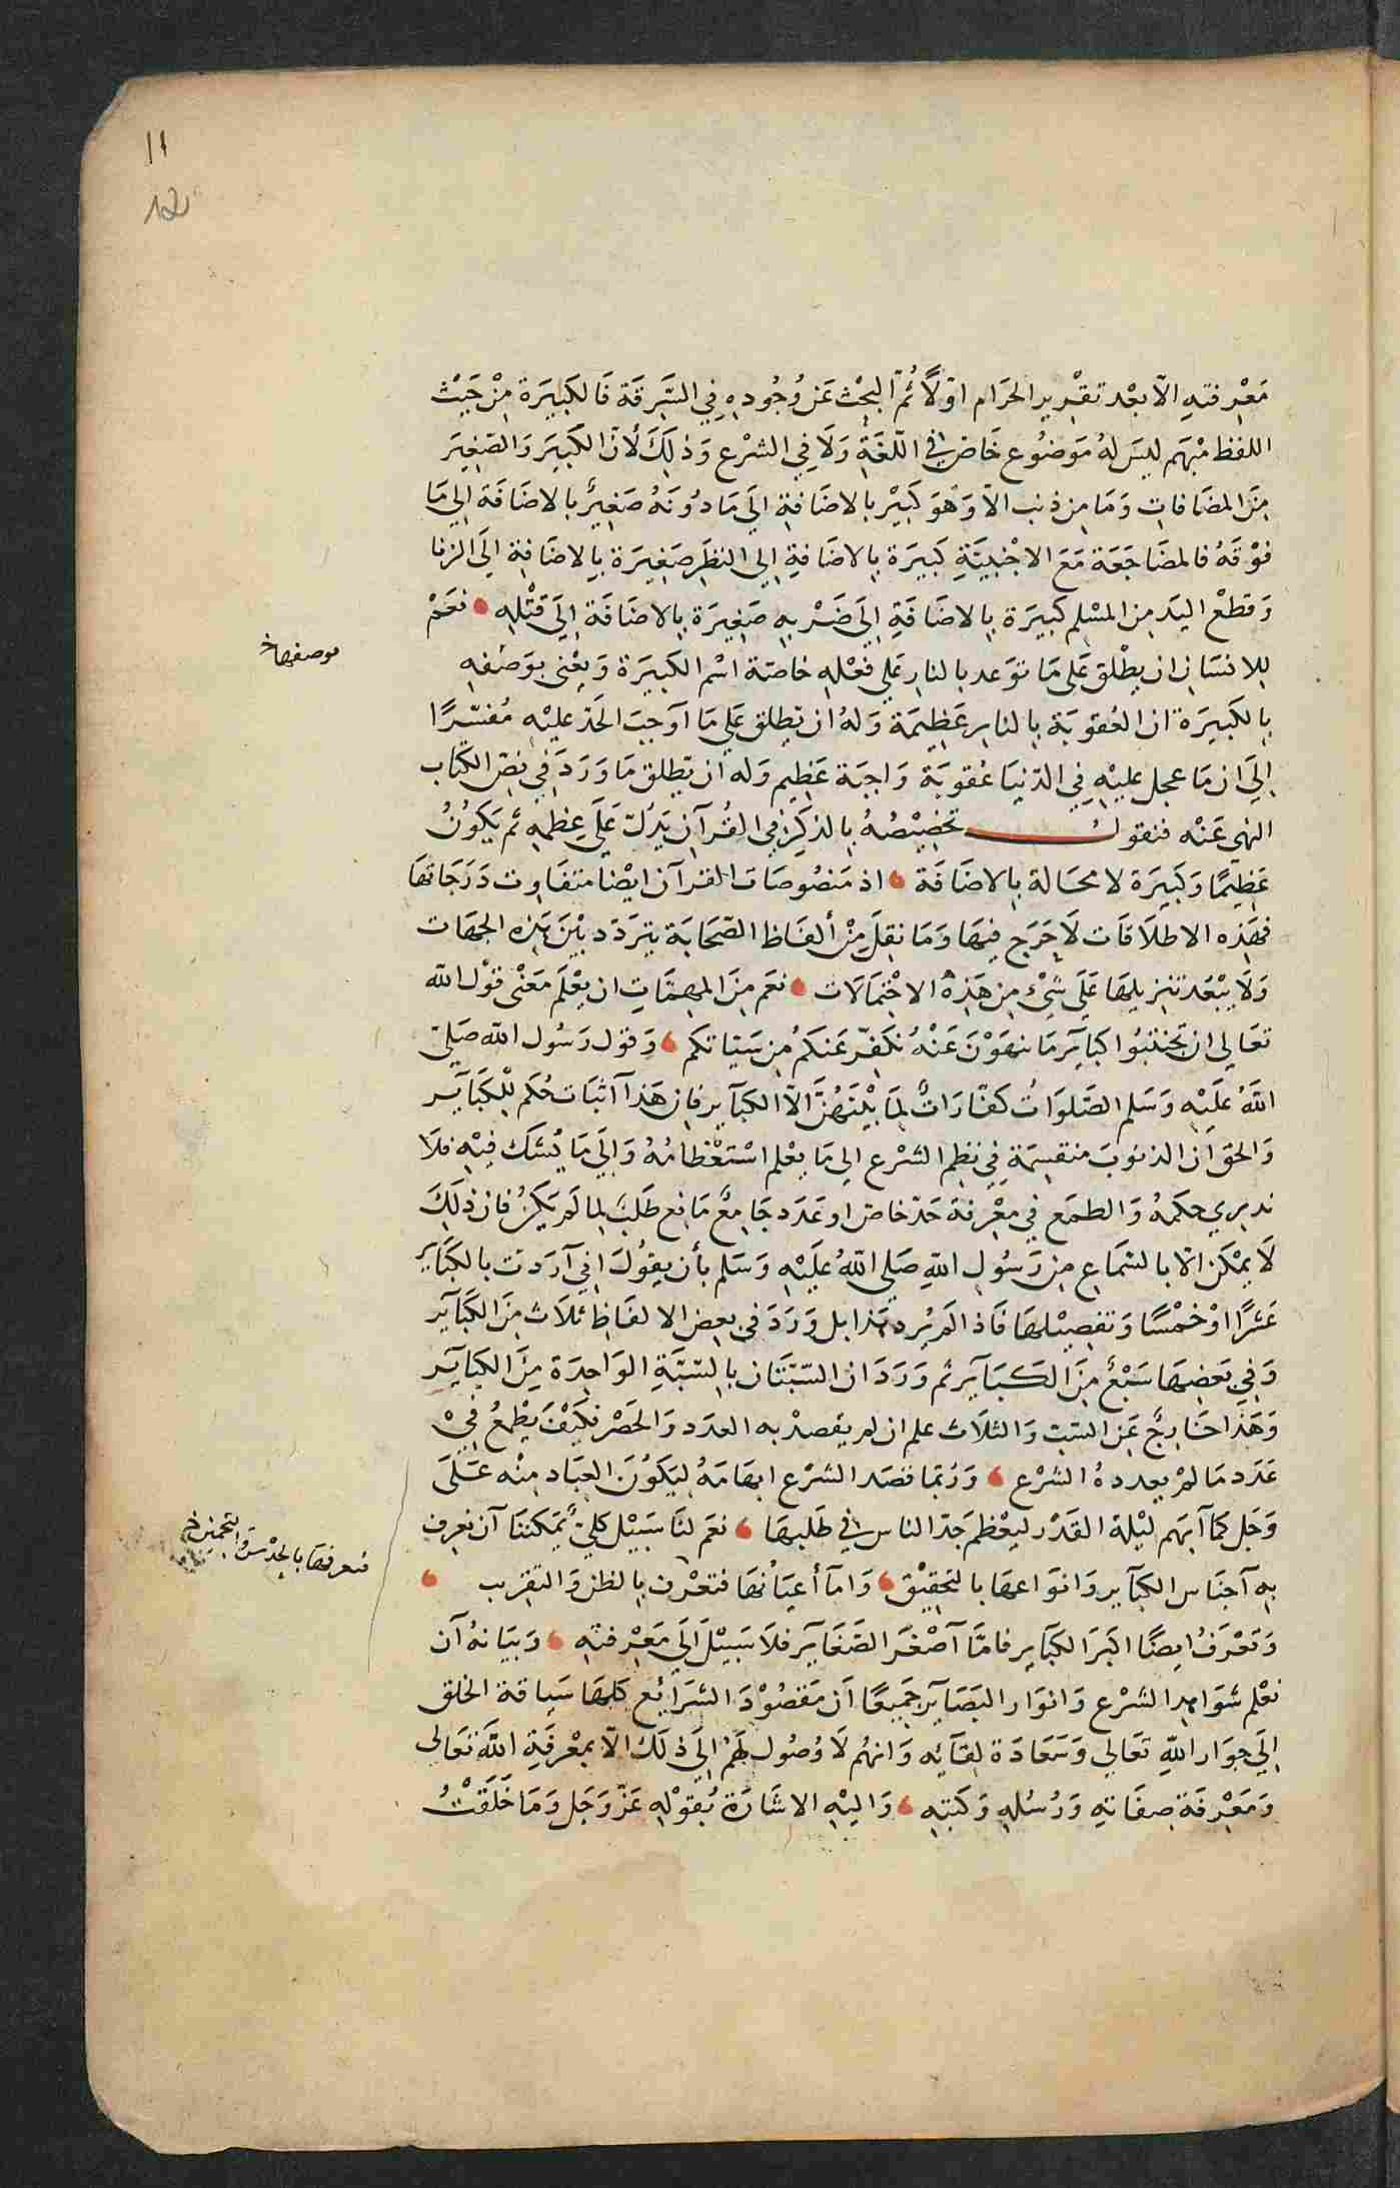 ١١
12
مَعْرِفتهِ الّا بعْد تقْرِير الحرَام اوّلًا ثُم البحْث عَن وُجُودهِ فِي السَّرقَة فَالكَبِيرَة مِنْ حَيْث
اللفظ مُبْهَم ليسَ لهُ مَوضوُع خَاص في اللّغَةِ وَلَا فِي الشرْع وَذلِكَ لأنّ الكَبيَر وَالصّغِيَر
مِنَ المضَافاتِ وَمَا مِن ذنب الّا وَهُوَ كَبيْر بالاضَافةِ اِلَى مَا دُونَهُ صَغِيرٌ بالاضَافَة اِلي مَا
فوْقَهُ فالمضَاجَعَة مَعَ الاجْنبِيَّةِ كَبيرَة بالاضَافةِ اِلى النظَرِ صَغِيرَة بالاضَافةِ اِلَى الزنا
وَقطعْ اليَد مِن المسْلِم كَبيرَة بِالاضَافَةِ اِلَى ضَرْبهِ صَغِيرَة بِالاضَافَة اِلَى قتْلِهِ نعَمْ
بوصفها خ
لِلانسَانِ ان يطْلق عَلى مَا توَعد بالنارِ عَلي فعْلهِ خاصّة اسْم الكَبيَرة وَيعْنى بوَصْفهِ
بِالكَبيَرة ان العُقوبَة بِالنار عَظِيمَة وَلهُ ان يطلق عَلي مَا آوجبَ الحَدّ عليْه مُفسّرًا
اِلَي ان مَا عجل عليْهِ فِي الدّنيَا عُقوبَة وَاجبَة عَظِيم وَله ان يطلق مَا وَرَدَ في نصّ الكتاب
النهى عَنْه فنقول تخصِيْصُهُ بِالذكر في القُرآن يَدُلّ عَلَى عِظمِهِ ثم يَكوُنُ
عَظِيمًا وَكبيَرة لا محَالة بِالاضَافَة اذ مَنصُوصَات القرآن ايْضا متفَاوت دَرَجَاتهَا
فهَذِه الاطلَاقَات لَا حَرَج فيهَا وَمَا نقِلَ مِنْ ألفَاظ الصّحَابَة يتردّد بيْنَ هَذِه الجهَات
وَلَا يبْعُد تنزيلهَا عَلَى شئ مِن هَذِه الاحْتمَالَات نعَم مِنَ المهمَّاتِ ان يعْلَم مَعْنى قوْل الله
تعَالى ان تجْتنبُوا كبَآئِرَ مَا تنهَوْنَ عَنْهُ نكَفّر عَنكمُ مِن سَيّاتكم وَقول رَسُول الله صَلىّ
اللهُ علَيْهِ وَسَلم الصّلوَاتُ كفّارَاتٌ لمَا بيْنَهُنَّ الّا الكبَآير فان هَذا آثبَات حُكم لِلْكَبَآيـر
وَالحق آن الذنوبَ منقسِمَة فِي نظِر الشرْع الى مَا يعْلم اسْتعْظامُهُ وَاِلَي مَا يُشكّ فيْهِ فلَا
ندرى حكمهُ وَالطمَع في معْرِفة حَدّ خاص او عَدَد جَامِعٌ مَانِع طَلبٌ لما لَم يَكنُ فان ذلِكَ
لَا يمْكن الّا بالسّمَاعِ مِن رَسُولِ اللهِ صَلى اللهُ عليْهِ وَسَلم بأن يقوُلَ اِني آرَدت بالكَبَآئِر
عَشرًا اوْ خمْسًا وَتفصِيْلهَا فَاذا لَم يُرد هَذا بل وَرَدَ في بعض الالفَاظِ ثلَاث مِنَ الكَبَآئِر
وَفِي بَعضِهَا سَبْعٌ مِنَ الكَبَآئِر ثم وَرَدَ ان السّبّتَان بِالسّبَّةِ الوَاحِدَة مِنَ الكبَآئِر
وَهَذا خَارِجٌ عَن السّبت وَالثلَاث علم ان لم يقصدْ به العدَد وَالحَصْر فكَيْفَ يطْمعُ فيْ
عَدَد مَا لمْ يعددهُ الشرْع وَرُبّما قصَد الشرْع ابهَامَهُ ليَكوُنَ العِبَاد مِنْه عَلَى
وَجَل كمَا آبهَم ليْلة القَدْر ليعْظم جَدّ الناس في طَلبهَا نعَم لنَا سَبيْل كليٌّ يمَكننَا آن نعرِف
فنعرفها بالحدْس والتخمين خ
بِهِ آجنَاس الكبَآيِر وَانوَاعهَا بالتحقيْق وَامآ أعيَانُهَا فتعْرف بِالظن وَالتقرِيب
وَتعْرَفُ ايضًا اكبَرَ الكبَآيِر فامَّا آصْغَر الصّغَآيِر فلَا سَبيْلَ اِلَى مَعْرِفتهِ وَبيَانهُ آن
نعْلم شوَاهد الشرْع وَانوَار البَصَآيِر جَميعًا آن مَقصُوْدَ الشرَائِع كلهَا سَياقة الخلق
اِلَى جوَار اللهِ تعَالى وَسَعَادَة لقآئِه وَانهُم لَا وُصُول لهُمْ اِلىَ ذلكَ الّا بمعْرِفَةِ الله تعَالى
وَمَعْرِفَة صِفَاتهِ وَرُسُلِهِ وَكتبهِ وَاليْهِ الاشَارَة بُقوْلهِ عَزّ وَجَل وَمَا خَلَقْتُ